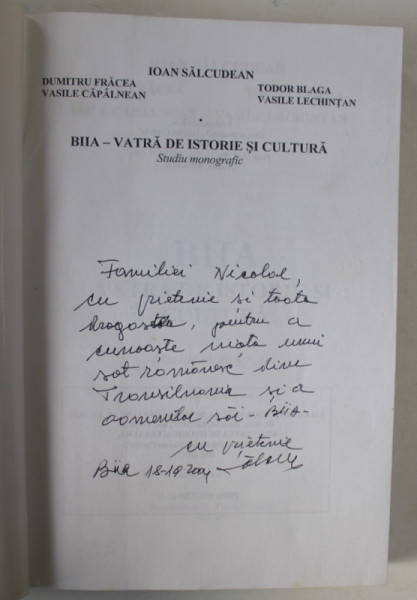 IOAN SĂLCUDEAN
DUMITRU FRĂCEA TODOR BLAGA
VASILE CĂPÂLNEAN VASILE LECHINȚAN
BIIA – VATRĂ DE ISTORIE ȘI CULTURĂ
Studiu monografic
Familiei Nicolae,
cu prietenie și toata
dragostea, pentru a
cunoaște viața unui
sat românesc din
Transilvania și a
oamenilor săi - Biia -
cu prietenie
Biia